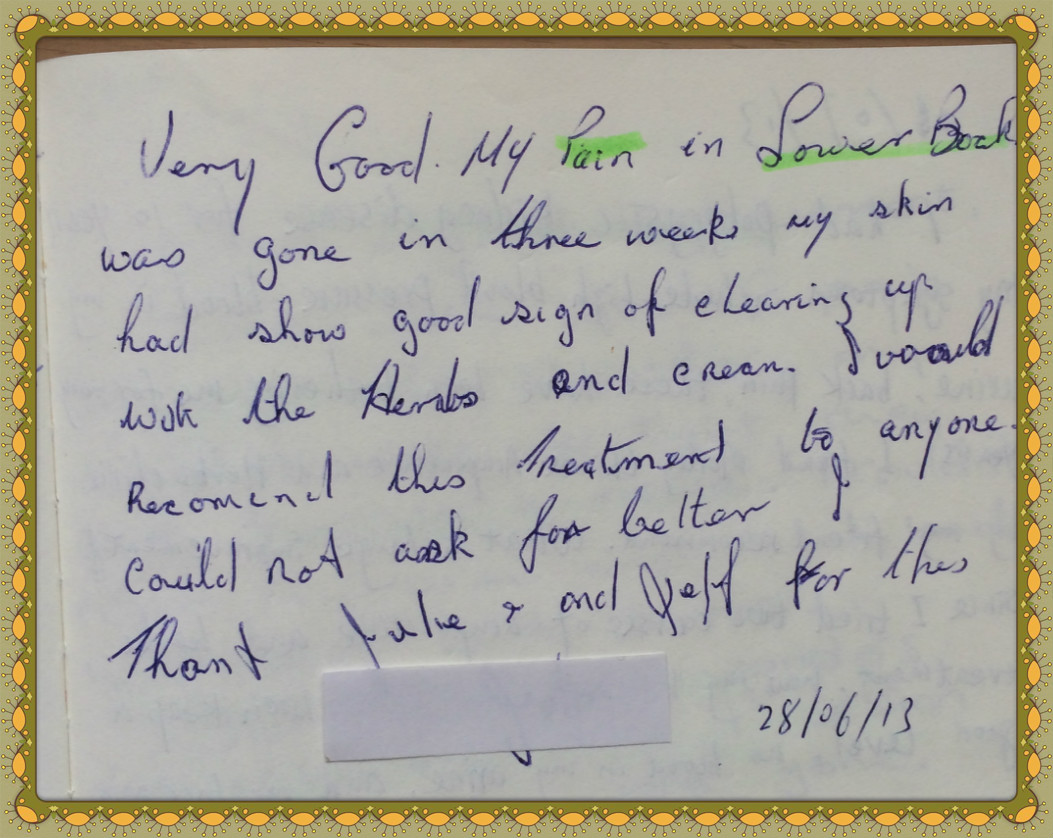 Very Good. My Pain in Lower Back
was gone in three weeks my skin
had show good sign of clearing up
with the Herbs and cream. I would
Recomend this treatment to anyone.
I
Could not ask for better
Thank Julie & and Jeff for this
28/06/13